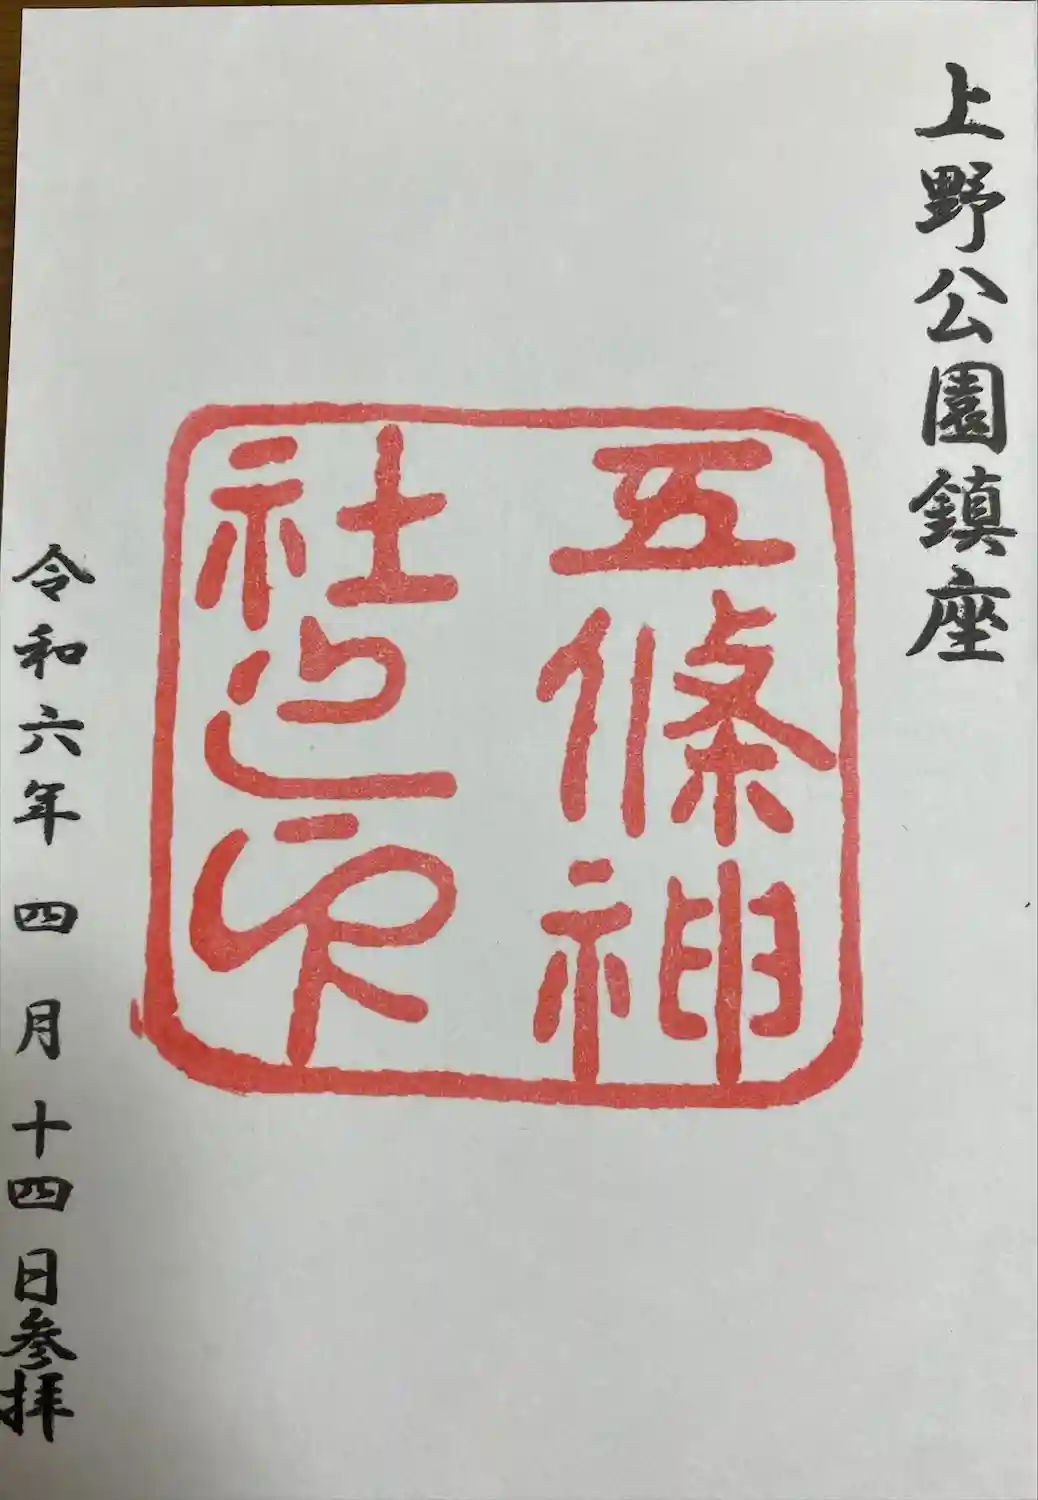 上野公園鎮座
五條神
社之印
令和六年四月十四日参拝